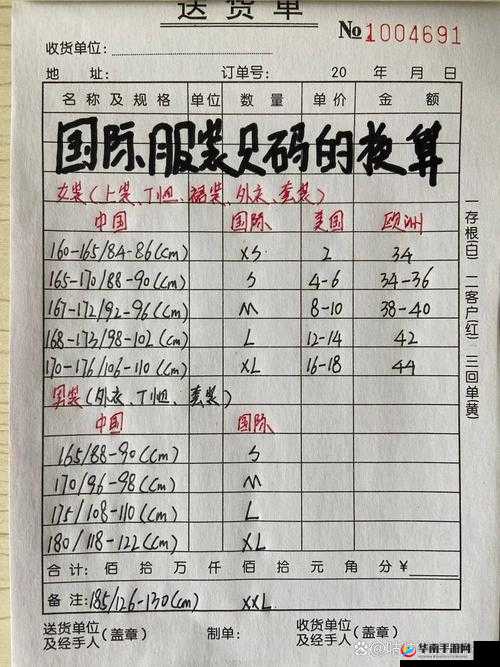 送货单
№1004691
收货单位:
地 址: 订单号: 20 年 月 日
名称及规格 单位 数量 单价 金额
国际服装尺码的换算
女装(上装、T恤、裙装、外衣、套装)
中国 国际 美国 欧洲
160-165/84-86(cm) XS 2 34
165-170/88-90(cm) S 4-6 34-36
167-172/92-96(cm) M 8-10 38-40
168-173/98-102(cm) L 12-14 42
170-176/106-110(cm) XL 16-18 44
男装(外衣、T恤、套装)
中国 国际
165/88-90(cm) S
170/96-98(cm) M
175/108-110(cm) L
180/118-122(cm) XL
合计: 佰 拾 万 仟 佰 拾 元 角 分 ¥
备注: 185/126-130(cm) XXL
送货单位及经手人(盖章) 制单: 收货单位及经手人(盖章)
一存根(白) 二客户(红) 三回单(黄)
华南手游网